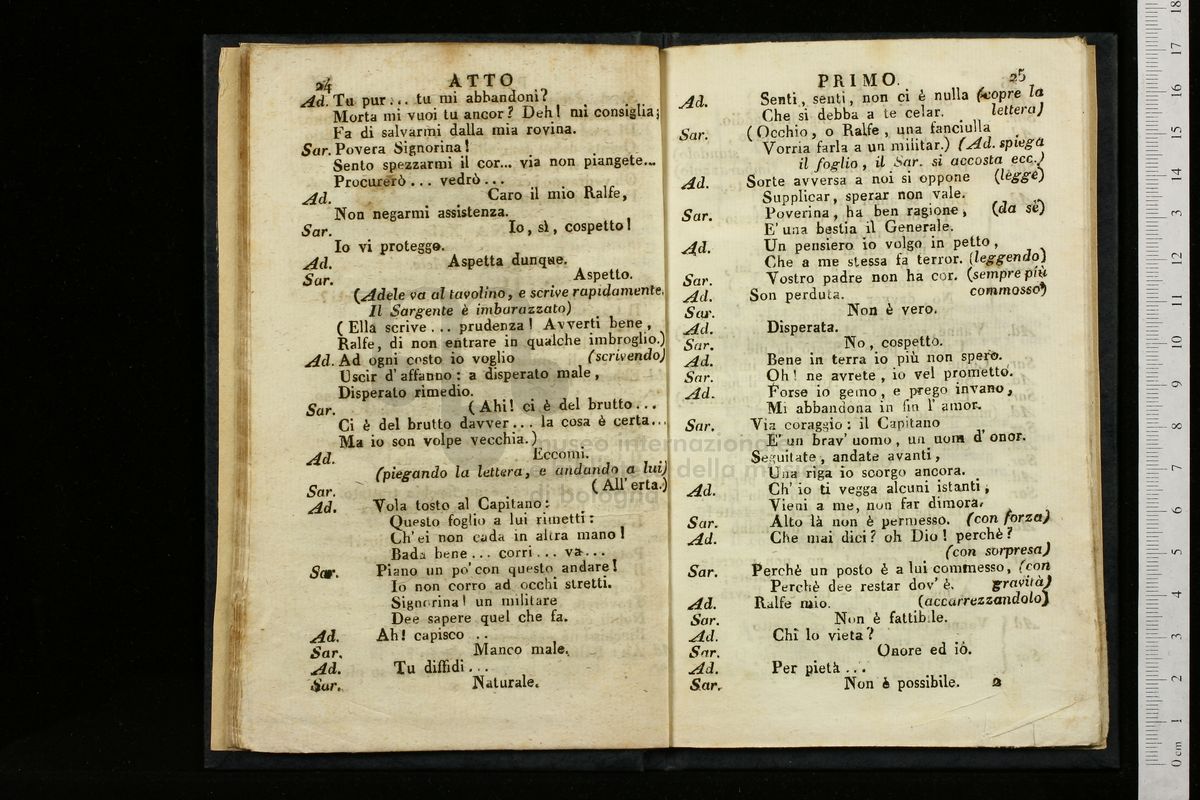 24 ATTO
Ad. Tu pur... tu mi abbandoni?
Morta mi vuoi tu ancor? Deh! mi consiglia;
Fa di salvarmi dalla mia rovina.
Sar. Povera Signorina!
Sento spezzarmi il cor... via non piangete...
Procurerò... vedrò...
Ad. Caro il mio Ralfe,
Non negarmi assistenza.
Sar. Io, sì, cospetto!
Io vi proteggo.
Ad. Aspetta dunque.
Sar. Aspetto.
(Adele va al tavolino, e scrive rapidamente.
Il Sargente è imbarazzato)
(Ella scrive... prudenza! Avverti bene,
Ralfe, di non entrare in qualche imbroglio.)
Ad. Ad ogni costo io voglio (scrivendo)
Uscir d'affanno: a disperato male,
Disperato rimedio.
Sar. (Ahi! ci è del brutto...
Ci è del brutto davver... la cosa è certa...
Ma io son volpe vecchia.)
Ad. Eccomi.
(piegando la lettera, e andando a lui)
Sar. (All'erta.)
Ad. Vola tosto al Capitano:
Questo foglio a lui rimetti:
Ch'ei non cada in altra mano!
Bada bene... corri... va...
Sar. Piano un po' con questo andare!
Io non corro ad occhi stretti.
Signorina! un militare
Dee sapere quel che fa.
Ad. Ah! capisco ..
Sar. Manco male.
Ad. Tu diffidi...
Sar. Naturale.
PRIMO. 25
Ad. Senti, senti, non ci è nulla (copre la
Che si debba a te celar. lettera)
Sar. (Occhio, o Ralfe, una fanciulla
Vorria farla a un militar.) (Ad. spiega
il foglio, il Sar. si accosta ecc.)
Ad. Sorte avversa a noi si oppone (legge)
Supplicar, sperar non vale.
Sar. Poverina, ha ben ragione, (da sè)
E' una bestia il Generale.
Ad. Un pensiero io volgo in petto,
Che a me stessa fa terror. (leggendo)
Sar. Vostro padre non ha cor. (sempre più
Ad. Son perduta. commosso)
Sar. Non è vero.
Ad. Disperata.
Sar. No, cospetto.
Ad. Bene in terra io più non spero.
Sar. Oh! ne avrete, io vel prometto.
Ad. Forse io gemo, e prego invano,
Mi abbandona in fin l'amor.
Sar. Via coraggio: il Capitano
E' un brav'uomo, un uom d'onor.
Seguitate, andate avanti,
Una riga io scorgo ancora.
Ad. Ch'io ti vegga alcuni istanti,
Vieni a me, non far dimora.
Sar. Alto là non è permesso. (con forza)
Ad. Che mai dici? oh Dio! perchè?
(con sorpresa)
Sar. Perchè un posto è a lui commesso, (con
Perchè dee restar dov'è. gravità)
Ad. Ralfe mio. (accarrezzandolo)
Sar. Non è fattibile.
Ad. Chi lo vieta?
Sar. Onore ed io.
Ad. Per pietà...
Sar. Non è possibile. 2
museo internazionale
della musica
di bologna
0 cm 1 2 3 4 5 6 7 8 9 10 11 12 13 14 15 16 17 18